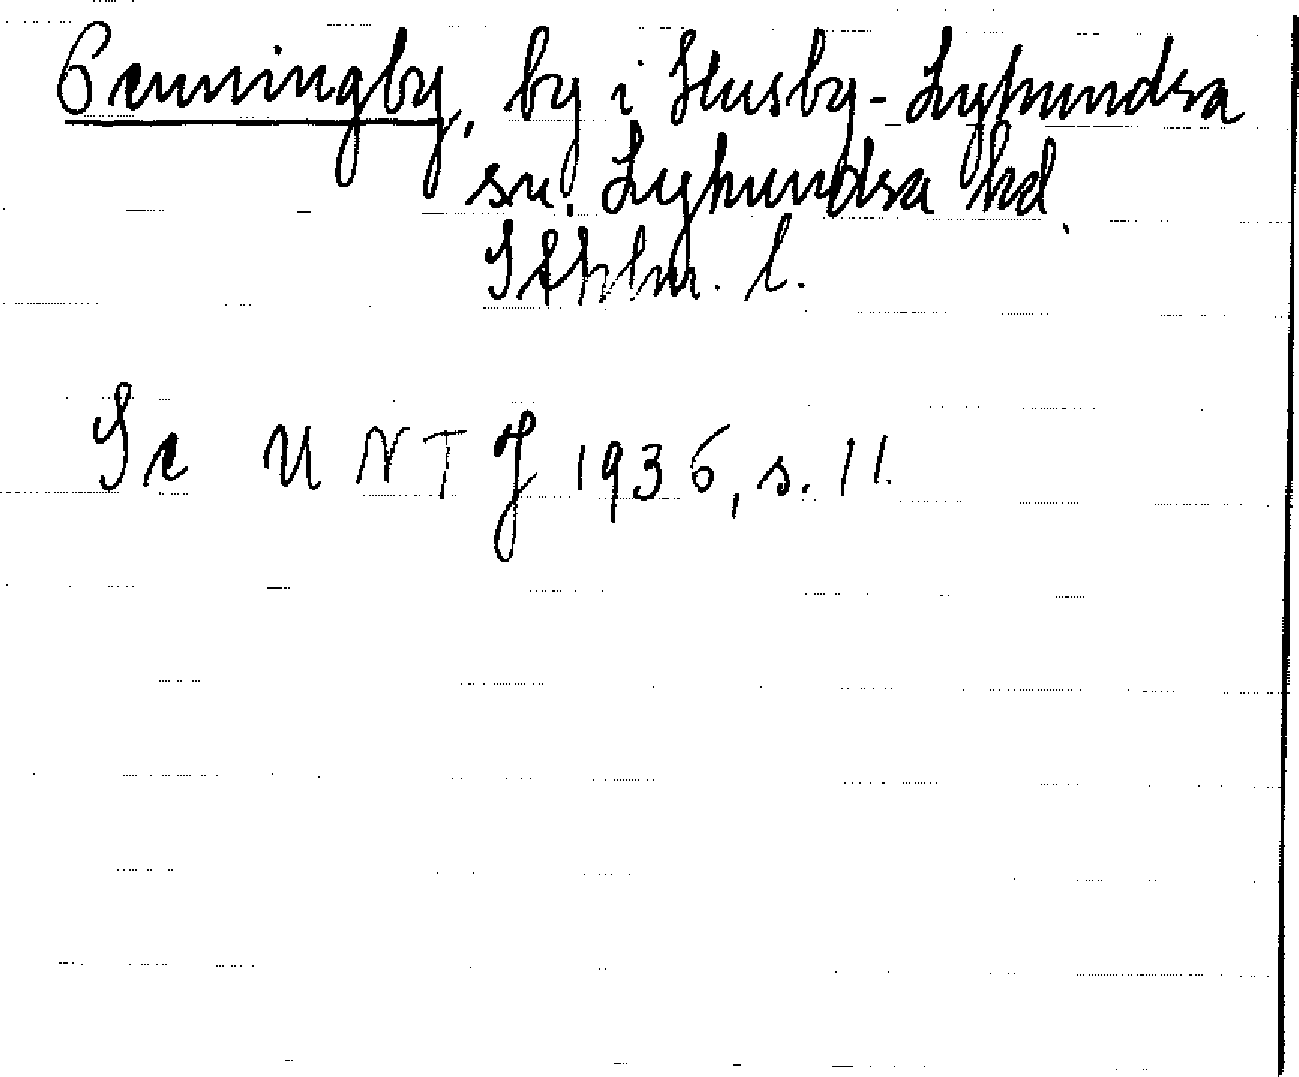 Genningby, by i Husby-Lyhundra
sn. Lyhundra hd.
Sthlm. l.
Se UNTJ 1936, s. 11.